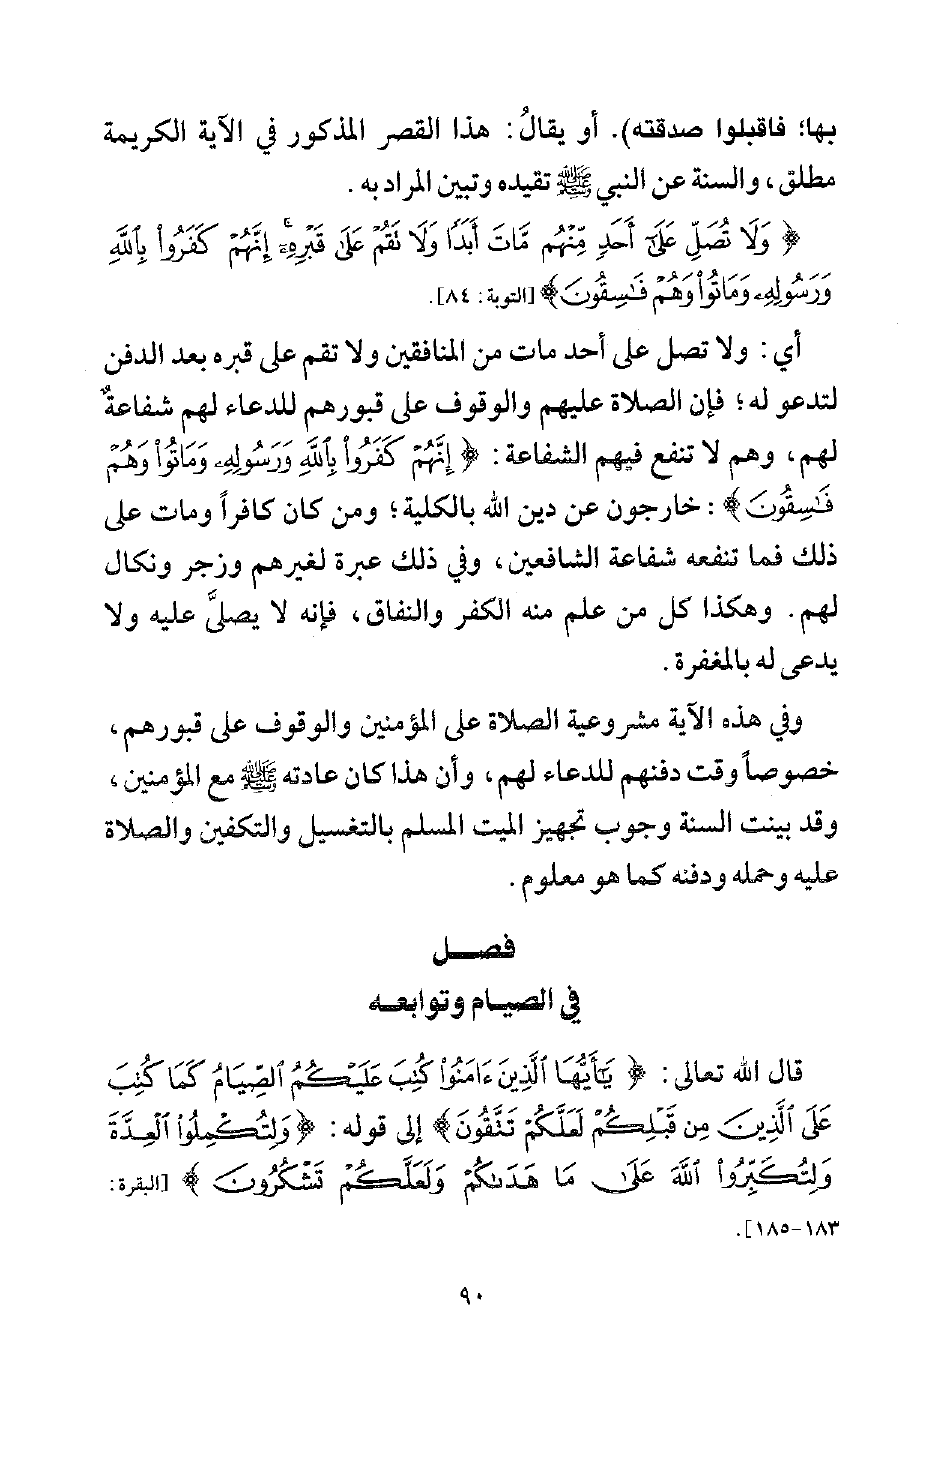 بها؛ فاقبلوا صدقته). أو يقالُ: هذا القصر المذكور في الآية الكريمة
مطلق، والسنة عن النبي ﷺ تقيده وتبين المراد به.
﴿ وَلَا تُصَلِّ عَلَىٰٓ أَحَدٍ مِّنْهُم مَّاتَ أَبَدًا وَلَا نَقُمْ عَلَىٰ قَبْرِهِۦٓ ۖ إِنَّهُمْ كَفَرُوا۟ بِٱللَّهِ
وَرَسُولِهِۦ وَمَاتُوا۟ وَهُمْ فَـٰسِقُونَ ﴾ [التوبة: ٨٤].
أي: ولا تصل على أحد مات من المنافقين ولا تقم على قبره بعد الدفن
لتدعو له؛ فإن الصلاة عليهم والوقوف على قبورهم للدعاء لهم شفاعةٌ
لهم، وهم لا تنفع فيهم الشفاعة: ﴿ إِنَّهُمْ كَفَرُوا۟ بِٱللَّهِ وَرَسُولِهِۦ وَمَاتُوا۟ وَهُمْ
فَـٰسِقُونَ ﴾: خارجون عن دين الله بالكلية؛ ومن كان كافراً ومات على
ذلك فما تنفعه شفاعة الشافعين، وفي ذلك عبرة لغيرهم وزجر ونكال
لهم. وهكذا كل من علم منه الكفر والنفاق، فإنه لا يصلىَّ عليه ولا
يدعى له بالمغفرة.
وفي هذه الآية مشروعية الصلاة على المؤمنين والوقوف على قبورهم،
خصوصاً وقت دفنهم للدعاء لهم، وأن هذا كان عادته ﷺ مع المؤمنين،
وقد بينت السنة وجوب تجهيز الميت المسلم بالتغسيل والتكفين والصلاة
عليه وحمله ودفنه كما هو معلوم.
فصـــل
في الصيام وتوابعه
قال الله تعالى: ﴿ يَـٰٓأَيُّهَا ٱلَّذِينَ ءَامَنُوا۟ كُتِبَ عَلَيْكُمُ ٱلصِّيَامُ كَمَا كُتِبَ
عَلَى ٱلَّذِينَ مِن قَبْلِكُمْ لَعَلَّكُمْ تَتَّقُونَ ﴾ إلى قوله: ﴿ وَلِتُكْمِلُوا۟ ٱلْعِدَّةَ
وَلِتُكَبِّرُوا۟ ٱللَّهَ عَلَىٰ مَا هَدَىٰكُمْ وَلَعَلَّكُمْ تَشْكُرُونَ ﴾ [البقرة:
١٨٣-١٨٥].
٩٠